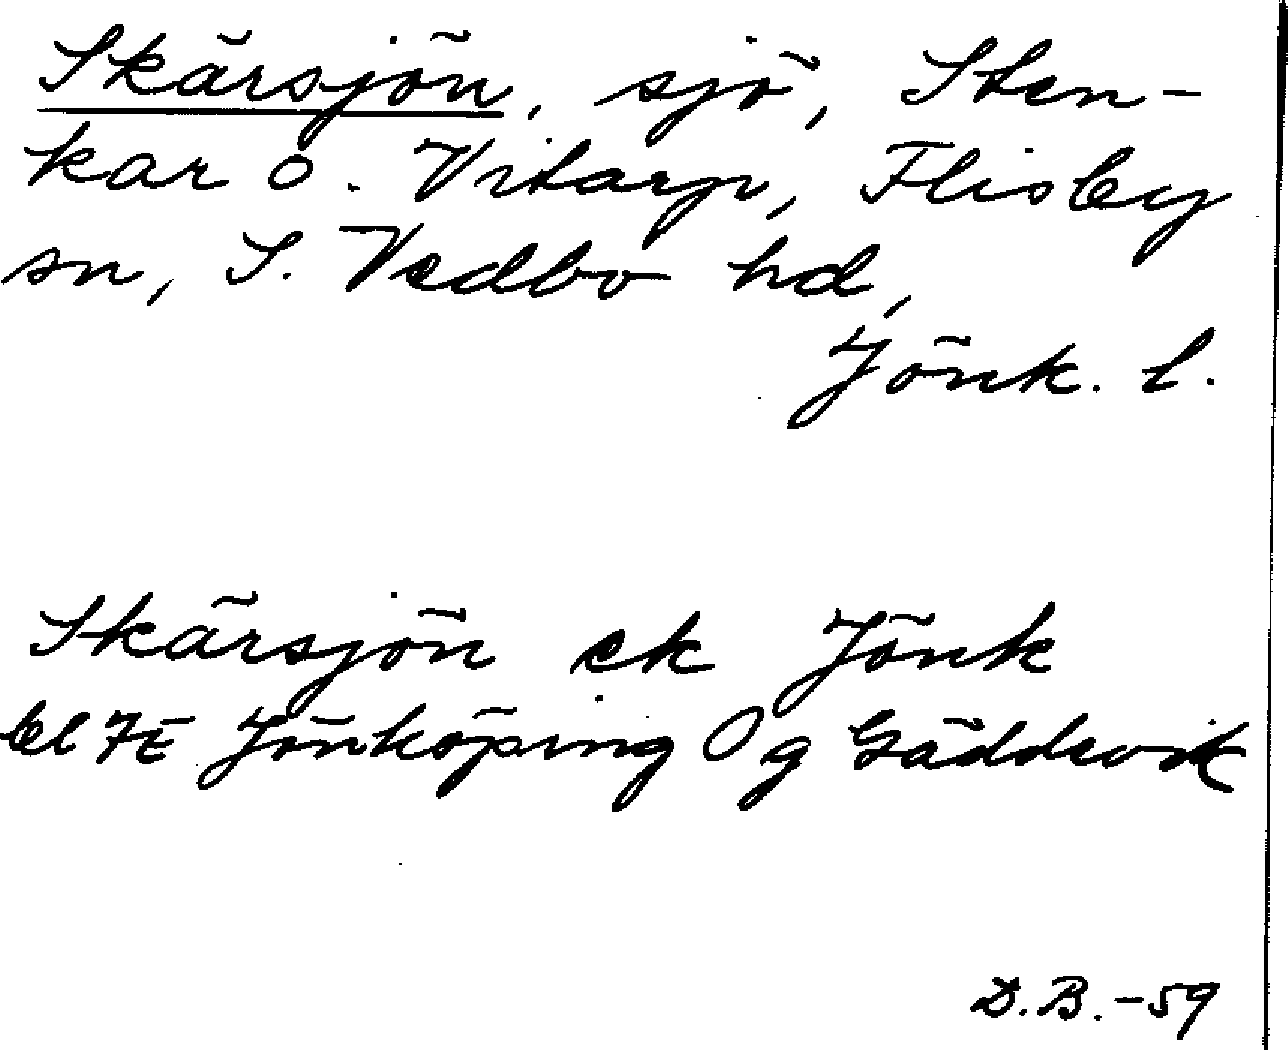 Skärsjön, sjö, Sten-
kar o. Vitarp, Flisby
sn, S. Vedbo hd,
Jönk. l.
Skärsjön ek Jönk
bl 7E Jönköping Og Gäddevik
D.B. -59